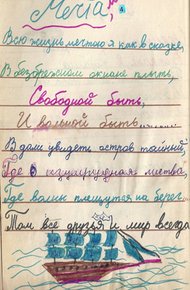 Мечта,
Всю жизнь мечтаю я как в сказке,
В безбрежном океане плыть,
Свободной быть,
И вольной быть........
В дали увидеть остров тайный,
Где изумрудная листва,
Где волны плещутся на берег
Там все друзья и мир всегда